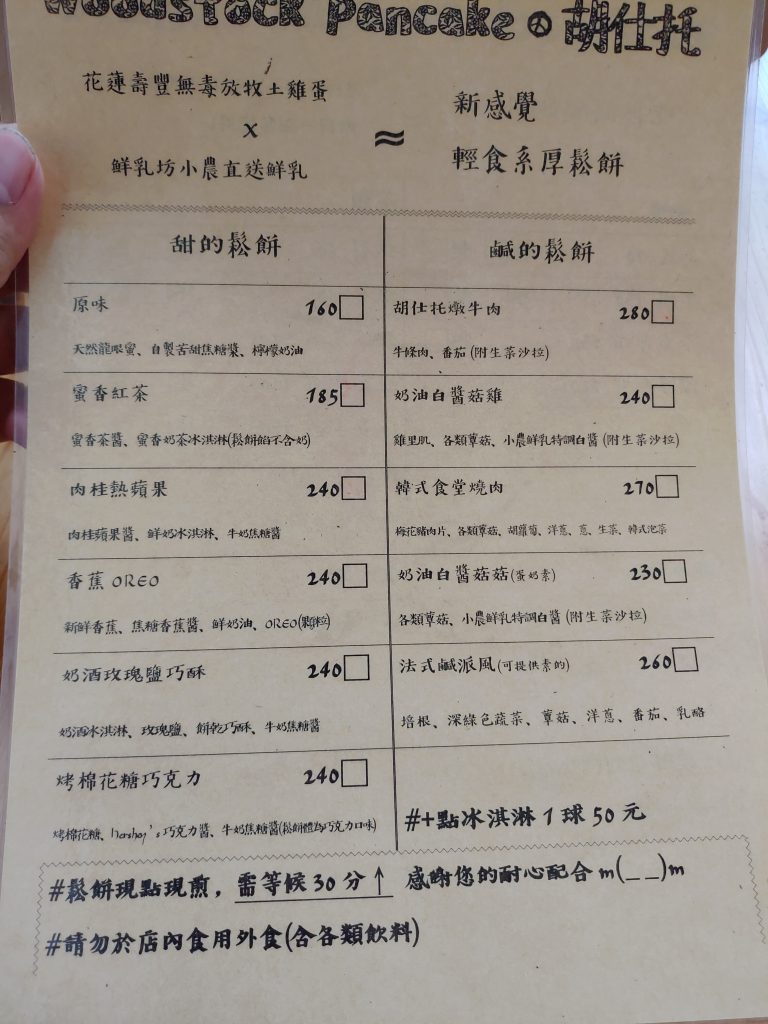 Woodstock Pancake 胡仕托
花蓮壽豐無毒放牧土雞蛋
x
鮮乳坊小農直送鮮乳
≈
新感覺
輕食系厚鬆餅
甜的鬆餅
原味 160
天然龍眼蜜、自製苦甜焦糖漿、檸檬奶油
蜜香紅茶 185
蜜香茶醬、蜜香奶茶冰淇淋(鬆餅餡不含奶)
肉桂熱蘋果 240
肉桂蘋果醬、鮮奶冰淇淋、牛奶焦糖醬
香蕉 OREO 240
新鮮香蕉、焦糖香蕉醬、鮮奶油、OREO(顆粒)
奶酒玫瑰鹽巧酥 240
奶酒冰淇淋、玫瑰鹽、餅乾巧酥、牛奶焦糖醬
烤棉花糖巧克力 240
烤棉花糖、hershey's巧克力醬、牛奶焦糖醬(鬆餅體為巧克力口味)
鹹的鬆餅
胡仕托燉牛肉 280
牛條肉、番茄(附生菜沙拉)
奶油白醬菇雞 240
雞里肌、各類蕈菇、小農鮮乳特調白醬(附生菜沙拉)
韓式食堂燒肉 270
梅花豬肉片、各類蕈菇、胡蘿蔔、洋蔥、蔥、生菜、韓式泡菜
奶油白醬菇菇(蛋奶素) 230
各類蕈菇、小農鮮乳特調白醬(附生菜沙拉)
法式鹹派風(可提供素的) 260
培根、深綠色蔬菜、蕈菇、洋蔥、番茄、乳酪
#+點冰淇淋 1 球 50 元
#鬆餅現點現煎，需等候 30 分↑ 感謝您的耐心配合 m(_ _)m
#請勿於店內食用外食(含各類飲料)